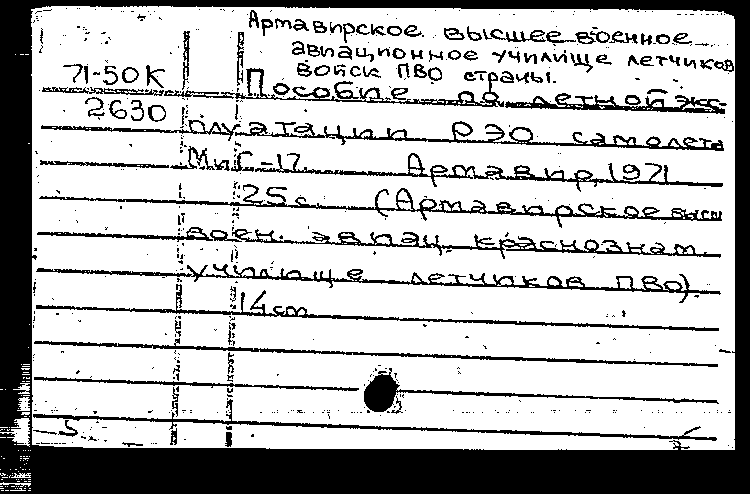 Армавирское высшее военное
авиационное училище летчиков
войск ПВО страны.
71-50К
Пособие по летной экс-
2630
плуатации РЭО самолета
МиГ-17. Армавир, 1971
25 с. (Армавирское высш
воен. авиац. краснознам.
училище летчиков ПВО)
14 cm